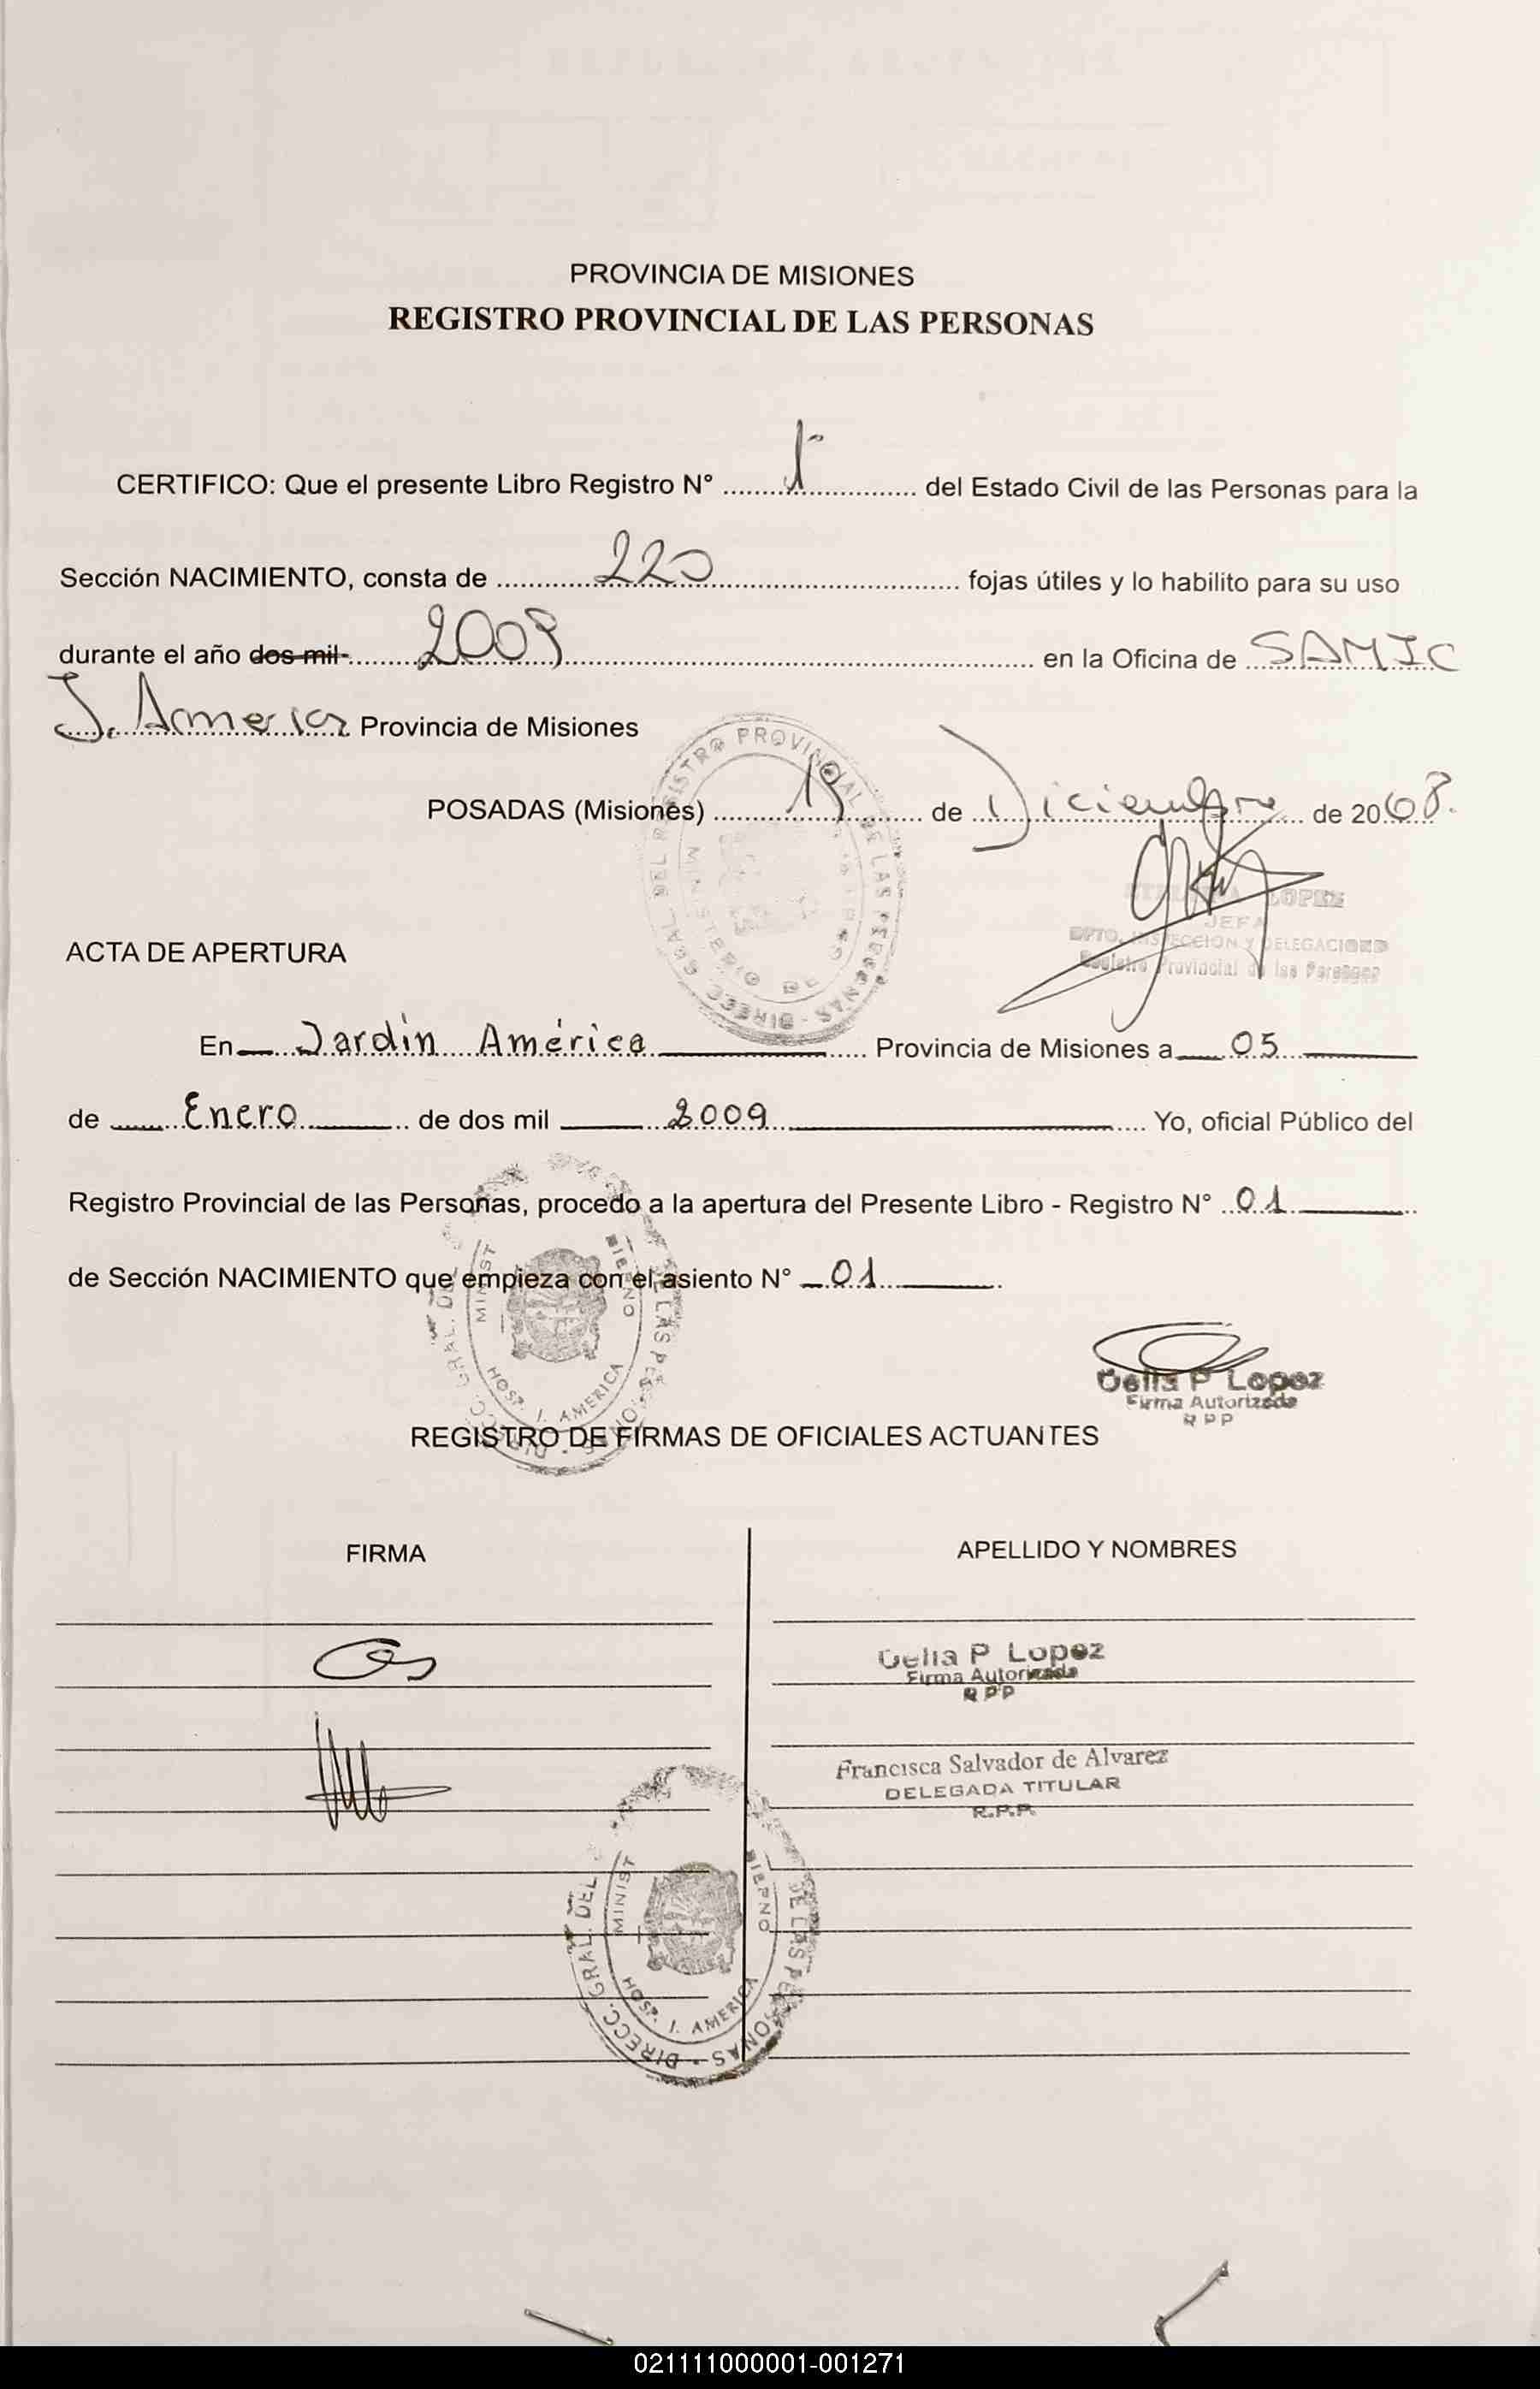 PROVINCIA DE MISIONES
REGISTRO PROVINCIAL DE LAS PERSONAS
CERTIFICO: Que el presente Libro Registro N° 1° del Estado Civil de las Personas para la
Sección NACIMIENTO, consta de 220 fojas útiles y lo habilito para su uso
durante el año dos mil 2009 en la Oficina de SAMIC
J. America Provincia de Misiones
POSADAS (Misiones) 19 de Diciembre de 2008.
LOPEZ
JEFA
DPTO. INSPECCION Y DELEGACIONES
Registro Provincial de las Personas
DIRECC. GRAL. DEL REGISTRO PROVINCIAL DE LAS PERSONAS
MINISTERIO DE
ACTA DE APERTURA
En Jardín América Provincia de Misiones a 05
de Enero de dos mil 2009 Yo, oficial Público del
Registro Provincial de las Personas, procedo a la apertura del Presente Libro - Registro N° 01
de Sección NACIMIENTO que empieza con el asiento N° 01
DIRECC. GRAL. DEL DE LAS PERSONAS
MINIST BIERNO
HOSP. J. AMERICA
Celia P Lopez
Firma Autorizada
R P P
REGISTRO DE FIRMAS DE OFICIALES ACTUANTES
FIRMA APELLIDO Y NOMBRES
Celia P Lopez
Firma Autorizada
R P P
Francisca Salvador de Alvarez
DELEGADA TITULAR
R.P.P.
DIRECC. GRAL. DEL DE LAS PERSONAS
MINIST BIERNO
HOSP. J. AMERICA
021111000001-001271